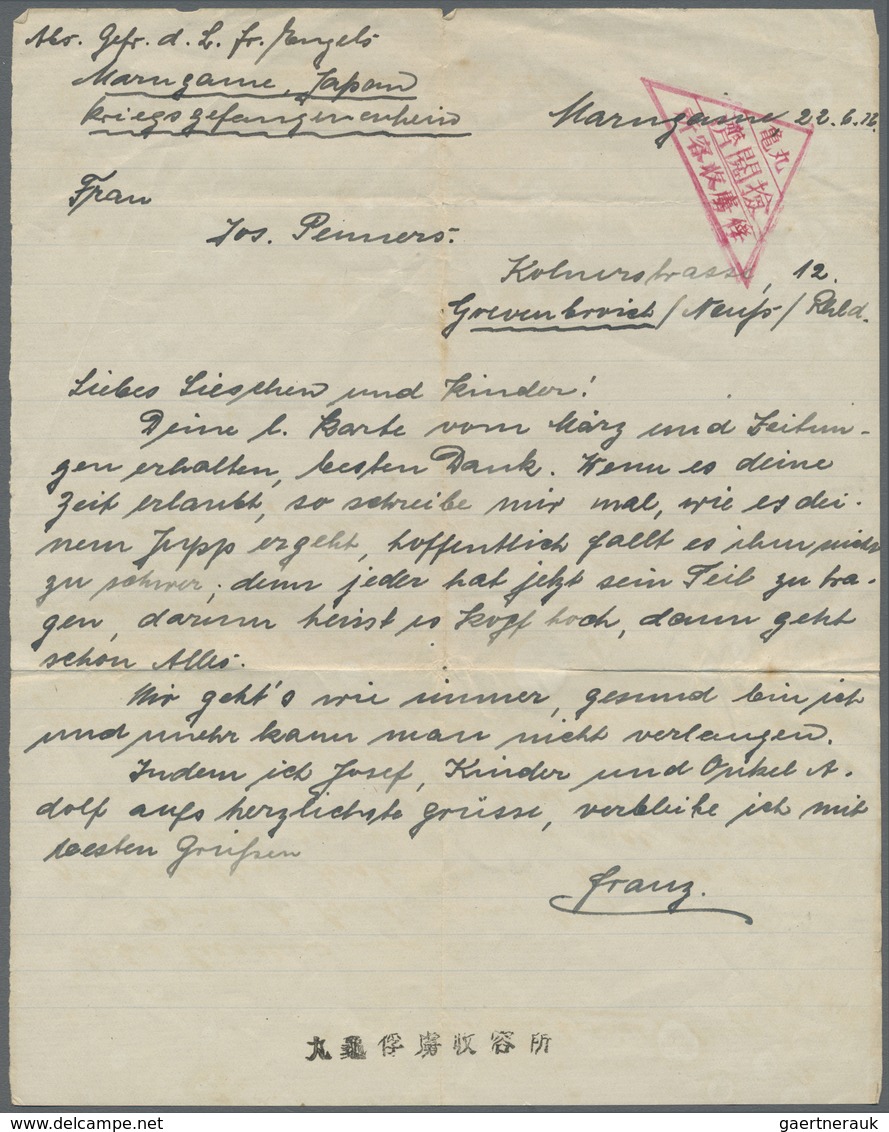 Abs. Gefr. d. L. Fr. Engels
Marugame, Japan
Kriegsgefangenenheim
Marugame 22.6.16.
丸亀
檢閲濟
俘虜收容所
Frau
Jos. Penners.
Kolnerstrasse, 12.
Grevenbroich / Neuß / Rhld.
Liebes Lieschen und Kinder!
Deine l. Karte vom März und Zeitun-
gen erhalten, besten Dank. Wenn es deine
Zeit erlaubt, so schreibe mir mal, wie es dei-
nem Jupp ergeht, hoffentlich fällt es ihm nicht
zu schwer; denn jeder hat jetzt sein Teil zu tra-
gen, darum heisst es Kopf hoch, dann geht
schon Alles.
Mir geht's wie immer, gesund bin ich
und mehr kann man nicht verlangen.
Indem ich Josef, Kinder und Onkel A-
dolf aufs herzlichste grüsse, verbleibe ich mit
besten Grüßen
Franz.
丸龜俘虜收容所
gaertnerauk